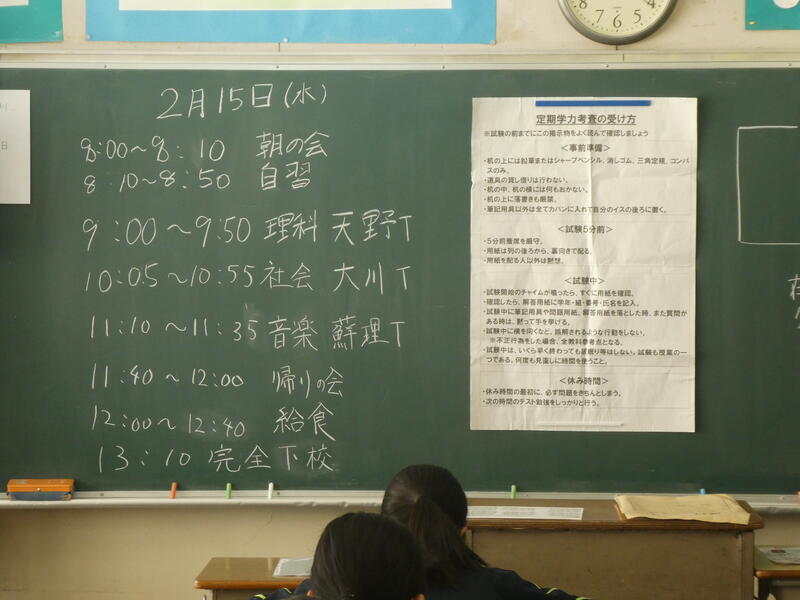 2月15日(水)
8:00～8:10 朝の会
8:10～8:50 自習
9:00～9:50 理科 天野T
10:05～10:55 社会 大川T
11:10～11:35 音楽 蘇理T
11:40～12:00 帰りの会
12:00～12:40 給食
13:10 完全下校
定期学力考査の受け方
※試験の前までにこの掲示物をよく読んで確認しましょう
＜事前準備＞
・机の上には鉛筆またはシャープペンシル、消しゴム、三角定規、コンパスのみ。
・道具の貸し借りは行わない。
・机の中、机の横には何もおかない。
・机の上に落書きも厳禁。
・筆記用具以外は全てカバンに入れて自分のイスの後ろに置く。
＜試験5分前＞
・5分前着席を厳守。
・用紙は列の後ろから、裏向きで配る。
・用紙を配る人以外は黙想。
＜試験中＞
・試験開始のチャイムが鳴ったら、すぐに用紙を確認。
・確認したら、解答用紙に学年・組・番号・氏名を記入。
・試験中に筆記用具や問題用紙、解答用紙を落とした時、また質問がある時は、黙って手を挙げる。
・試験中に横を向くなど、誤解されるような行動をしない。
※不正行為をした場合、全教科参考点となる。
・試験中は、いくら早く終わっても居眠り等はしない。試験も授業の一つである。何度も見直しに時間を使うこと。
＜休み時間＞
・休み時間の最初に、必ず問題をきちんとしまう。
・次の時間のテスト勉強をしっかりと行う。
8 7 6 5 4
日